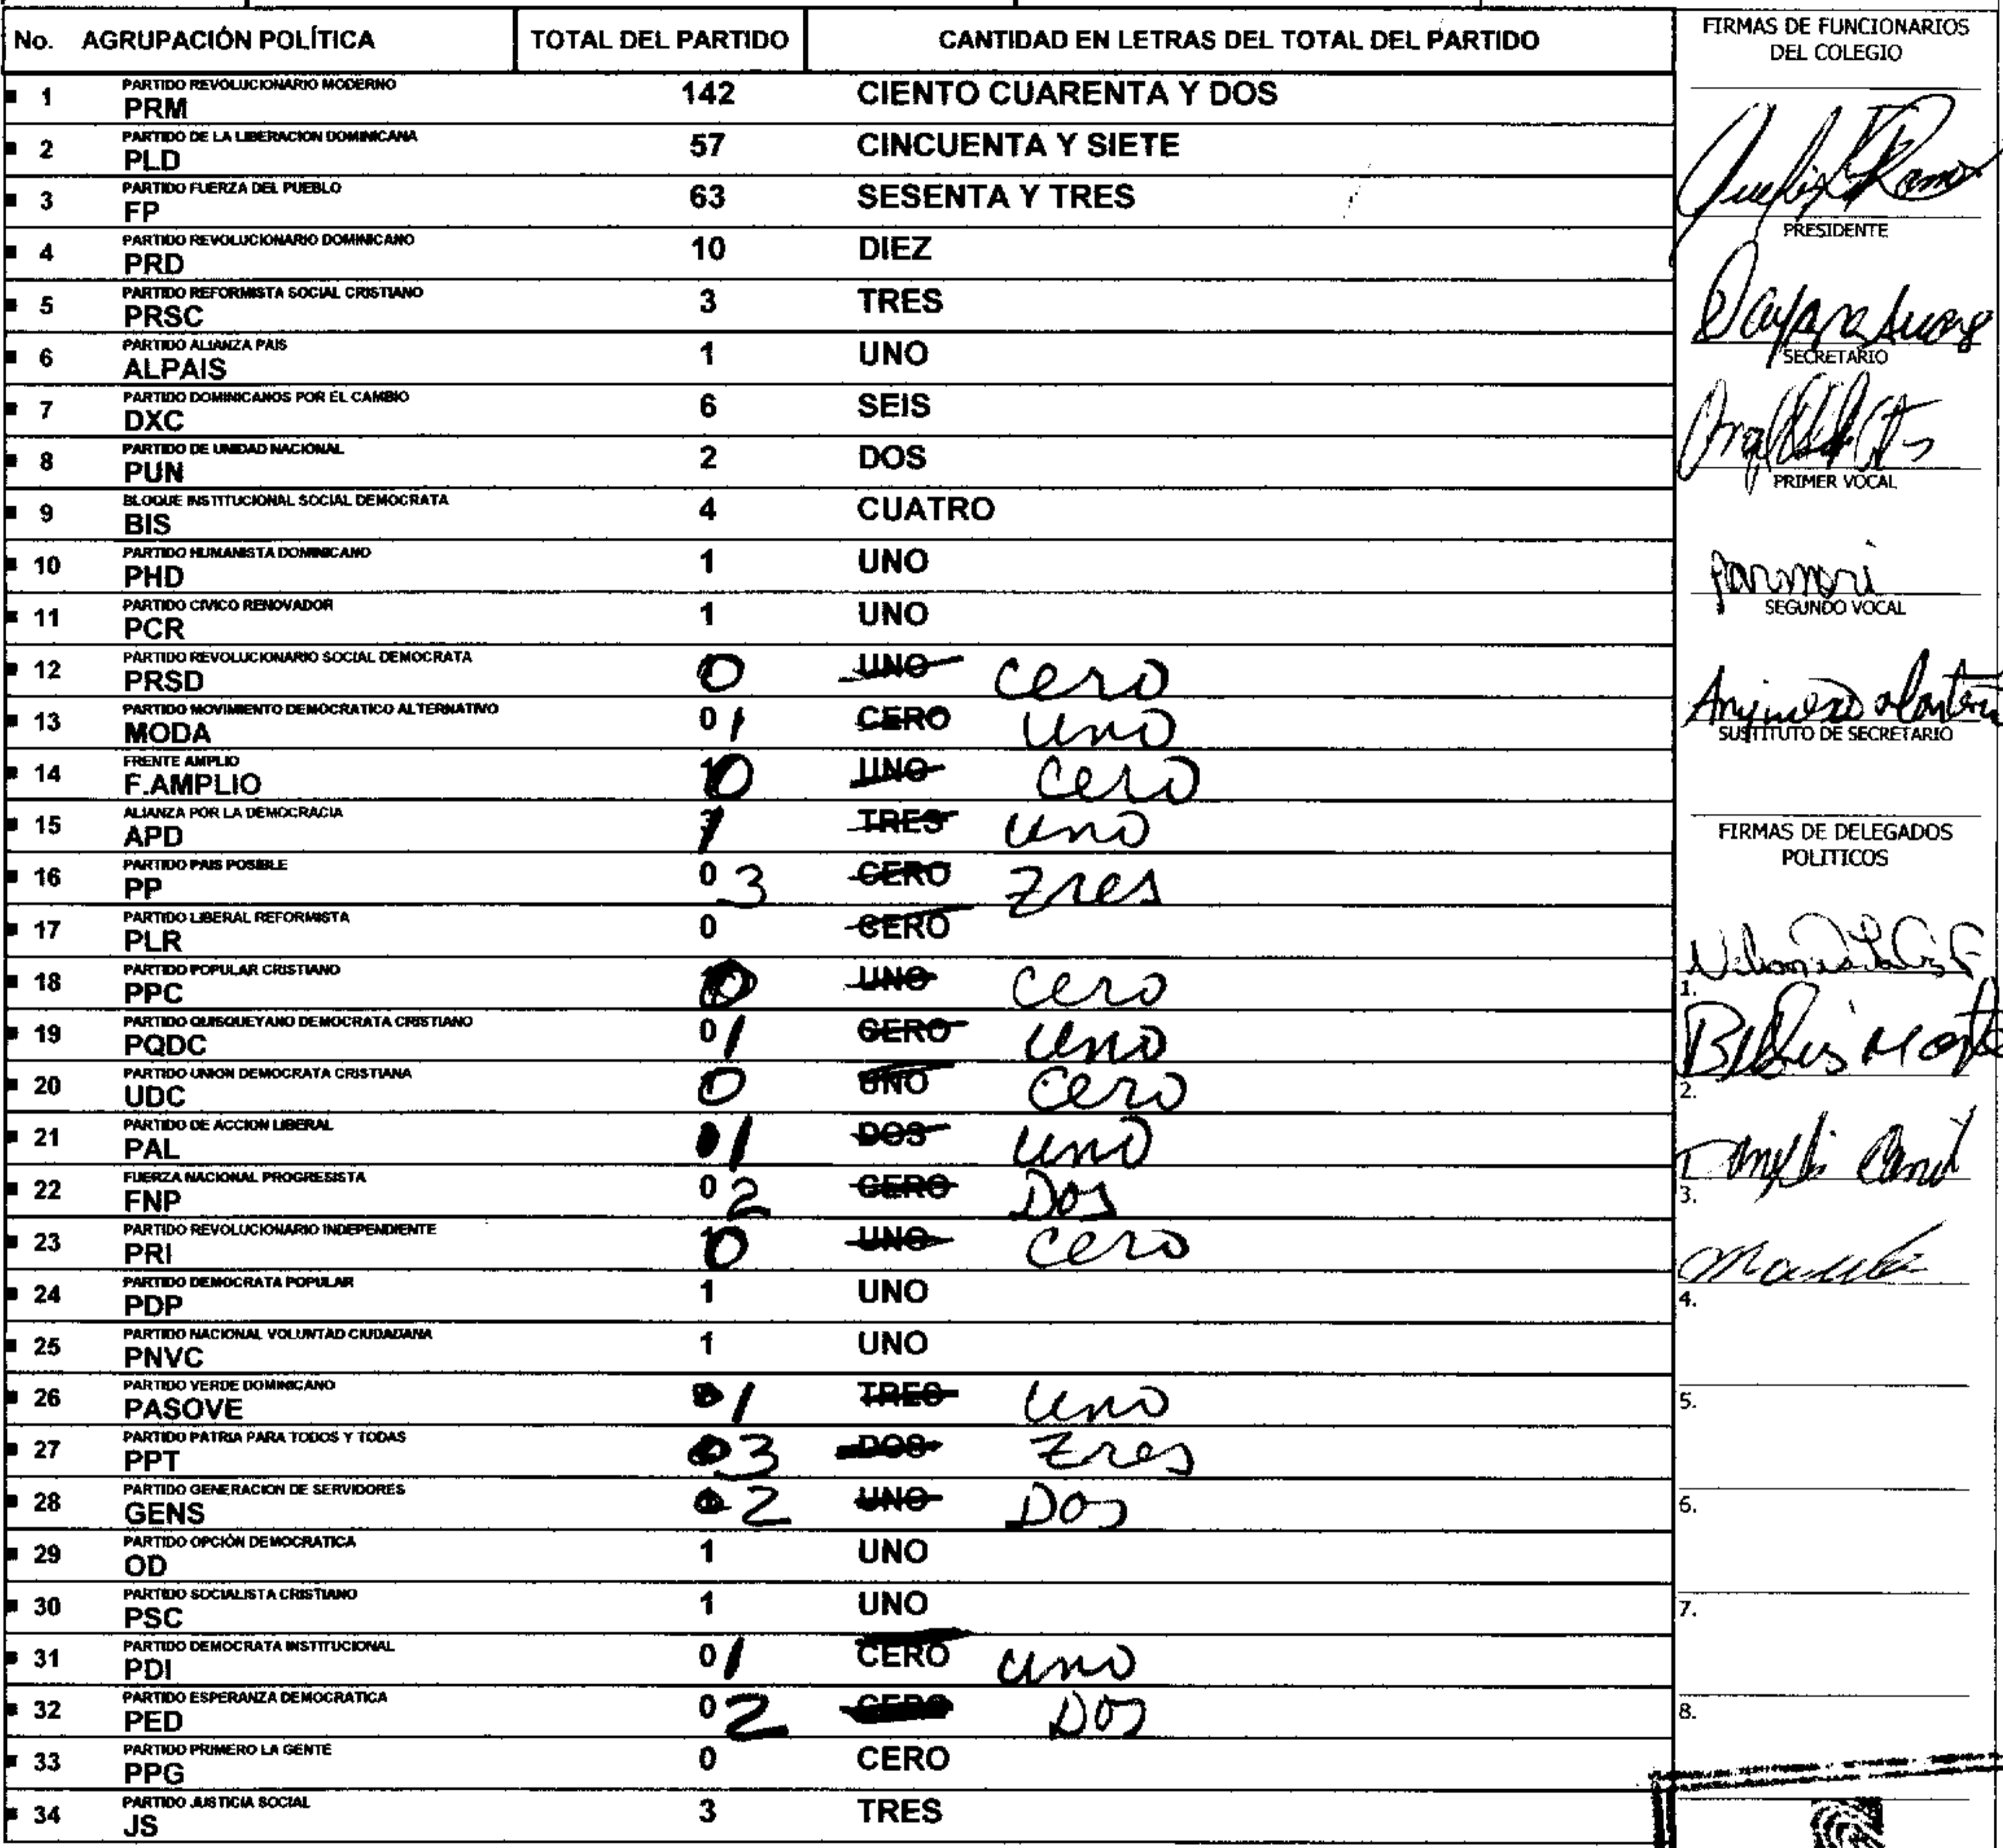 No. AGRUPACIÓN POLÍTICA TOTAL DEL PARTIDO CANTIDAD EN LETRAS DEL TOTAL DEL PARTIDO
1 PARTIDO REVOLUCIONARIO MODERNO
PRM 142 CIENTO CUARENTA Y DOS
2 PARTIDO DE LA LIBERACION DOMINICANA
PLD 57 CINCUENTA Y SIETE
3 PARTIDO FUERZA DEL PUEBLO
FP 63 SESENTA Y TRES
4 PARTIDO REVOLUCIONARIO DOMINICANO
PRD 10 DIEZ
5 PARTIDO REFORMISTA SOCIAL CRISTIANO
PRSC 3 TRES
6 PARTIDO ALIANZA PAIS
ALPAIS 1 UNO
7 PARTIDO DOMINICANOS POR EL CAMBIO
DXC 6 SEIS
8 PARTIDO DE UNIDAD NACIONAL
PUN 2 DOS
9 BLOQUE INSTITUCIONAL SOCIAL DEMOCRATA
BIS 4 CUATRO
10 PARTIDO HUMANISTA DOMINICANO
PHD 1 UNO
11 PARTIDO CIVICO RENOVADOR
PCR 1 UNO
12 PARTIDO REVOLUCIONARIO SOCIAL DEMOCRATA
PRSD 0 UNO cero
13 PARTIDO MOVIMIENTO DEMOCRATICO ALTERNATIVO
MODA 0 1 CERO uno
14 FRENTE AMPLIO
F.AMPLIO 0 UNO cero
15 ALIANZA POR LA DEMOCRACIA
APD 1 TRES uno
16 PARTIDO PAIS POSIBLE
PP 0 3 CERO Tres
17 PARTIDO LIBERAL REFORMISTA
PLR 0 CERO
18 PARTIDO POPULAR CRISTIANO
PPC 0 UNO cero
19 PARTIDO QUISQUEYANO DEMOCRATA CRISTIANO
PQDC 0 1 CERO uno
20 PARTIDO UNION DEMOCRATA CRISTIANA
UDC 0 UNO cero
21 PARTIDO DE ACCION LIBERAL
PAL 1 DOS uno
22 FUERZA NACIONAL PROGRESISTA
FNP 0 2 CERO Dos
23 PARTIDO REVOLUCIONARIO INDEPENDIENTE
PRI 0 UNO cero
24 PARTIDO DEMOCRATA POPULAR
PDP 1 UNO
25 PARTIDO NACIONAL VOLUNTAD CIUDADANA
PNVC 1 UNO
26 PARTIDO VERDE DOMINICANO
PASOVE 1 TRES uno
27 PARTIDO PATRIA PARA TODOS Y TODAS
PPT 3 DOS Tres
28 PARTIDO GENERACION DE SERVIDORES
GENS 2 UNO Dos
29 PARTIDO OPCIÓN DEMOCRATICA
OD 1 UNO
30 PARTIDO SOCIALISTA CRISTIANO
PSC 1 UNO
31 PARTIDO DEMOCRATA INSTITUCIONAL
PDI 0 1 CERO uno
32 PARTIDO ESPERANZA DEMOCRATICA
PED 0 2 CERO Dos
33 PARTIDO PRIMERO LA GENTE
PPG 0 CERO
34 PARTIDO JUSTICIA SOCIAL
JS 3 TRES
FIRMAS DE FUNCIONARIOS
DEL COLEGIO
PRESIDENTE
SECRETARIO
PRIMER VOCAL
SEGUNDO VOCAL
SUSTITUTO DE SECRETARIO
FIRMAS DE DELEGADOS
POLITICOS
1.
2.
3.
4.
5.
6.
7.
8.